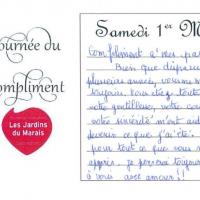 Journée du
Compliment
Les Jardins
du Marais
Samedi 1er M
Compliment à mes par
Bien que dispar
plusieurs année, vous me
toujours. Vous étiez tout
votre gentillesse, votre cou
votre sincérité m'ont aidé
devenir ce que j'ai été.
pour tout ce que vous m
appris. je penserai toujour
à vous avec amour!!